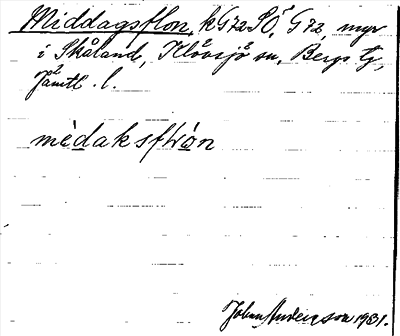 Middagsflon, kG72SÖ, G72, myr
i Skåland, Klövsjö sn, Bergs tg,
Jämtl. l.
mèdaksflón
John Anderson 1931.